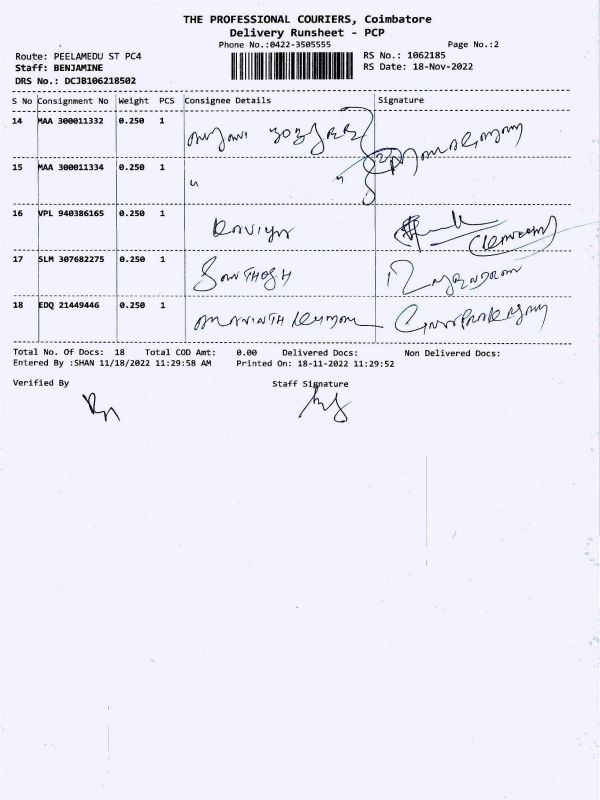 THE PROFESSIONAL COURIERS, Coimbatore
Delivery Runsheet - PCP
Phone No.:0422-3505555 Page No.:2
Route: PEELAMEDU ST PC4 RS No.: 1062185
Staff: BENJAMINE RS Date: 18-Nov-2022
DRS No.: DCJB106218502
S No Consignment No Weight PCS Consignee Details Signature
14 MAA 300011332 0.250 1
15 MAA 300011334 0.250 1 " "
16 VPL 940386165 0.250 1
17 SLM 307682275 0.250 1 SANTHOSH
18 EDQ 21449446 0.250 1
Total No. Of Docs: 18 Total COD Amt: 0.00 Delivered Docs: Non Delivered Docs:
Entered By :SHAN 11/18/2022 11:29:58 AM Printed On: 18-11-2022 11:29:52
Verified By Staff Signature